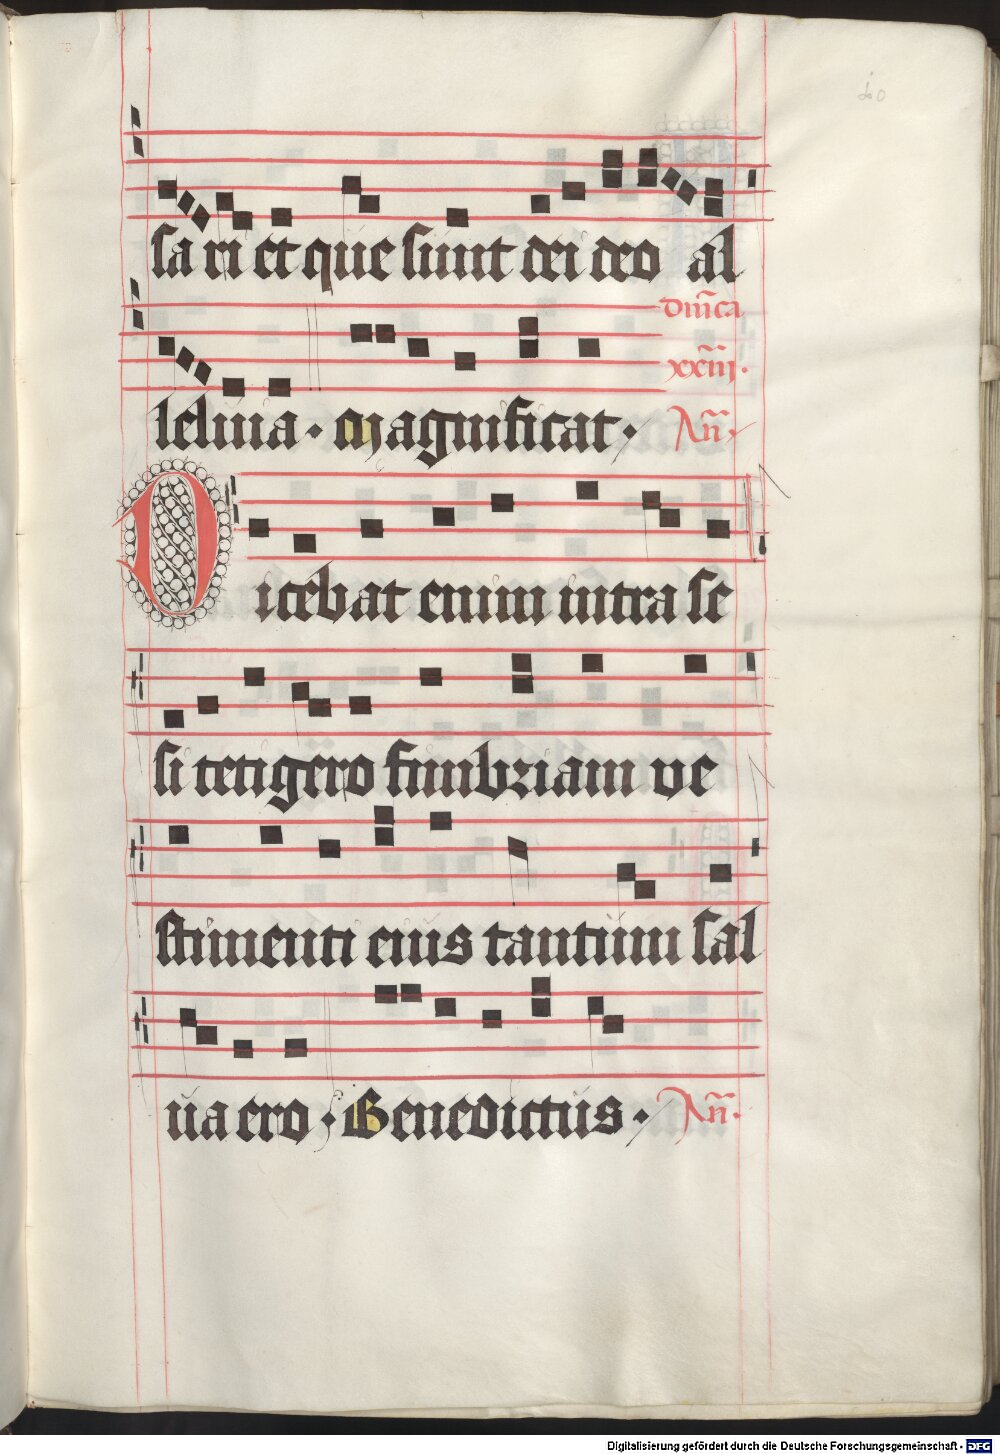 sa ri et que sunt dei deo al
dm̄ca
xxiii.
leluia · Magnificat · An̄.
Dicebat enim intra se
si tetigero fimbriam ve
stimenti eius tantum sal
ua ero · Benedictus · An̄.
Digitalisierung gefördert durch die Deutsche Forschungsgemeinschaft - DFG